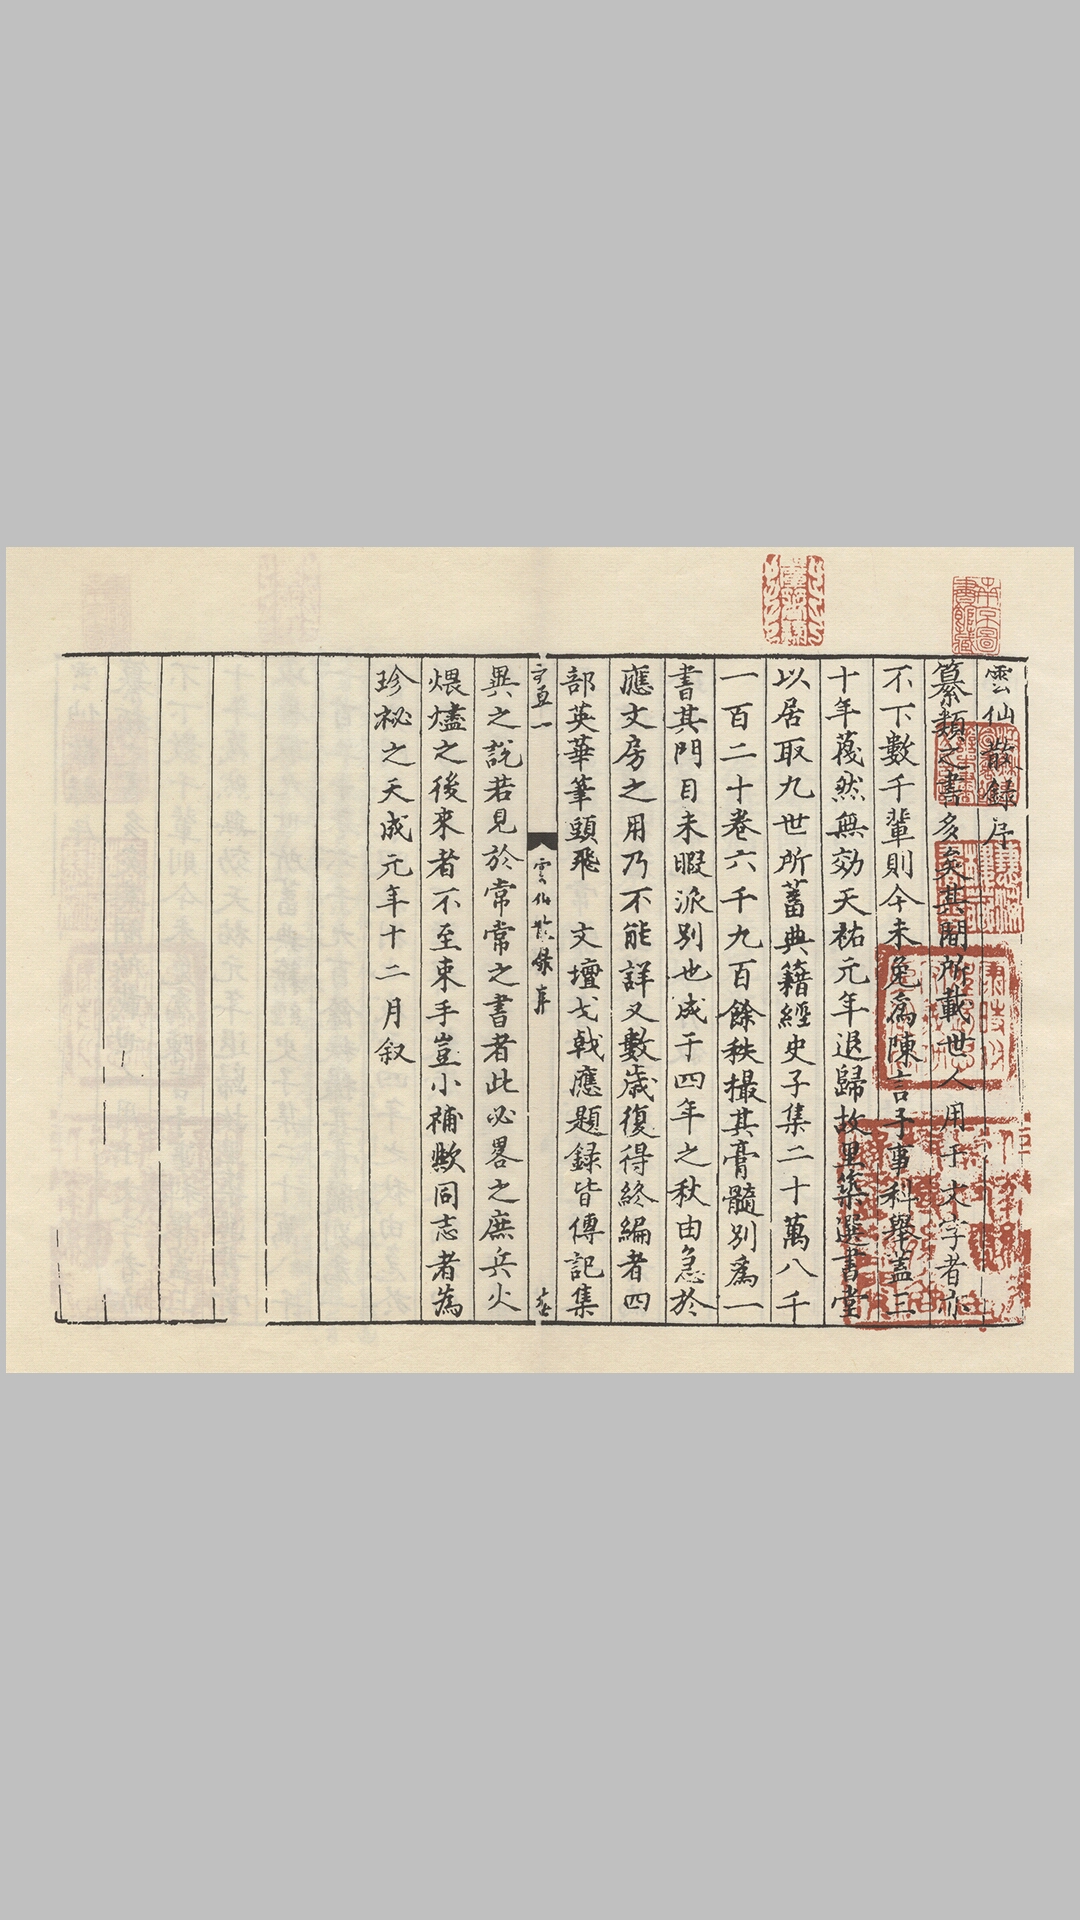 雲仙散録序
纂類之書多矣其間所載世人用于文字者亦
不下數千輩則今未免為陳言予事科舉蓋三
十年蔑然無効天祐元年退歸故里築選書堂
以居取九世所蓄典籍經史子集二十萬八千
一百二十卷六千九百餘秩撮其膏髓別為一
書其門目未暇派別也成于四年之秋由急於
應文房之用乃不能詳又數歲復得終編者四
部英華筆頭飛 文壇戈戟應題録皆傳記集
異之説若見於常常之書者此必畧之庶兵火
煨燼之後來者不至束手豈小補歟同志者為
珍祕之天成元年十二月叙
雲仙散録